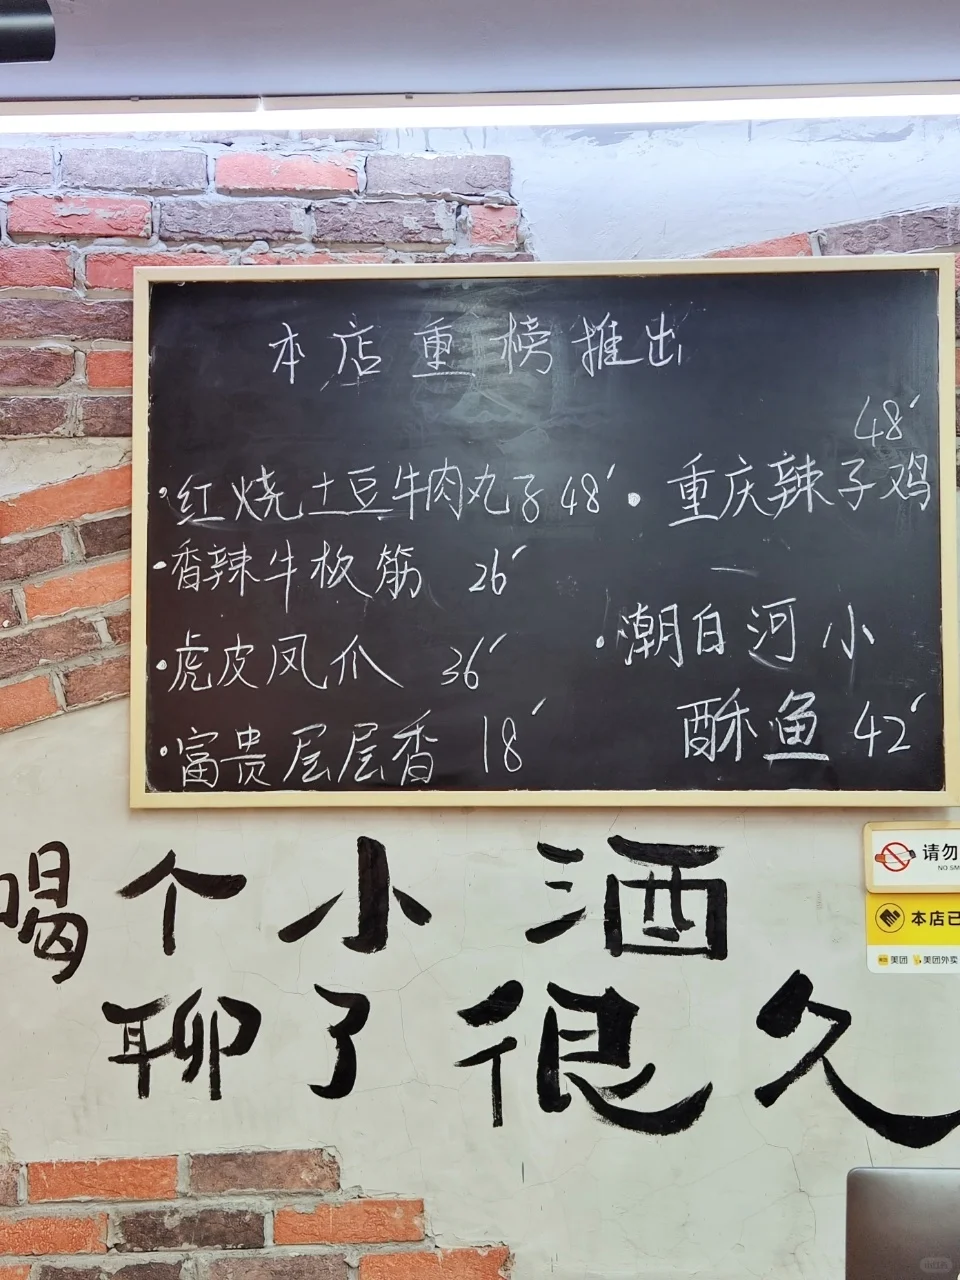 本店重榜推出
·红烧土豆牛肉丸子48'
·香辣牛板筋 26'
·虎皮凤爪 36'
·富贵层层香 18'
48'
·重庆辣子鸡
·潮白河小
酥鱼 42'
喝个小酒
聊了很久
请勿
NO SM
本店已
美团 美团外卖